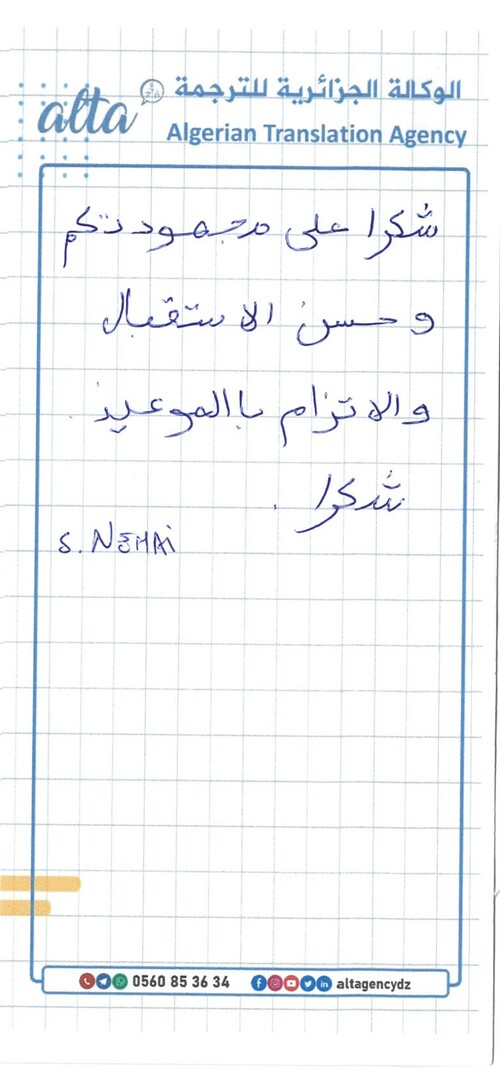 الوكالة الجزائرية للترجمة
alta
Algerian Translation Agency
شكرا على مجهودتكم
و حسن الاستقبال
والاتزام باالموعيد.
شكرا.
S. NEHAi
0560 85 36 34
altagencydz